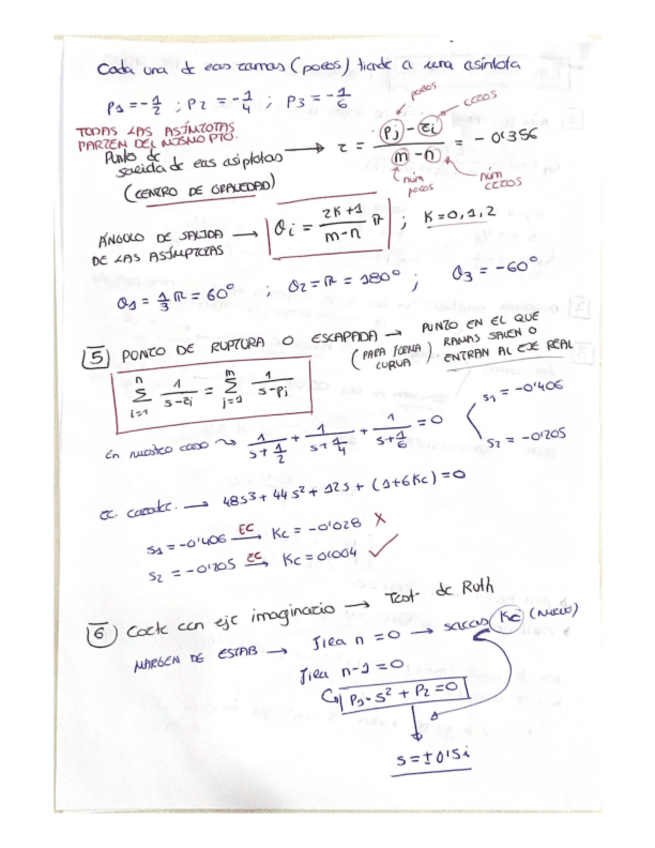 Cada una de esas ramas (polos) tiende a una asíntota
P1 = -1/2 ; P2 = -1/4 ; P3 = -1/6
polos
ceros
TODAS LAS ASÍNTOTAS
PARTEN DEL MISMO PTO.
Punto de
salida de las asíptotas
(CENTRO DE GRAVEDAD)
→ τ = (Pj - zi)/(m - n) = -0'356
núm polos
núm ceros
ÁNGULO DE SALIDA
DE LAS ASÍMPTOTAS → θi = (2K+1)/(m-n) π ; K = 0, 1, 2
θ1 = 1/3 π = 60º ; θ2 = π = 180º ; θ3 = -60º
5) PUNTO DE RUPTURA O ESCAPADA → PUNTO EN EL QUE
(PARA FORMA CURVA) RAMAS SALEN O
ENTRAN AL EJE REAL
n Σ i=1 1/(s-zi) = m Σ j=1 1/(s-pj)
En nuestro caso ⤳ 1/(s+1/2) + 1/(s+1/4) + 1/(s+1/6) = 0
s1 = -0'406
s2 = -0'205
ec. caract. → 48s³ + 44s² + 12s + (1+6Kc) = 0
s1 = -0'406 EC→ Kc = -0'028 X
s2 = -0'205 EC→ Kc = 0'004 ✓
6) Corte con eje imaginario → Test de Ruth
MARGEN DE ESTAB → Fila n = 0 → sacas Kc (nuevo)
Fila n-1 = 0
P1·s² + P2 = 0
s = ±0'5i